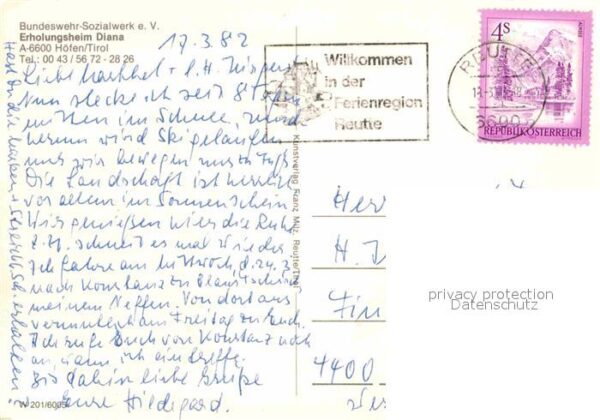 Bundeswehr-Sozialwerk e. V.
Erholungsheim Diana
A-6600 Höfen/Tirol
Tel.: 00 43 / 56 72 - 28 26
17.3.82
Willkommen
in der
Ferienregion
Reutte
REUTTE
6600
4 S
REPUBLIK ÖSTERREICH
Liebe
Nun stecke ich seit 8 Tagen
mitten im Schnee, rund
herum wird Ski gelaufen
nur wir bewegen uns zu Fuß.
Die Landschaft ist herrlich
vor allem im Sonnenschein.
Wir genießen hier die Ruhe
z. Zt. schneit es mal wieder.
Ich fahre am Mittwoch, d. 24.3.
nach Konstanz zu
meinem Neffen. Von dort aus
vermutlich am Freitag zu Euch.
Ich rufe Euch von Konstanz noch
an, wann ich eintreffe.
Bis dahin liebe Grüße
Eure Hildegard.
Kunstverlag Franz Milz, Reutte/Tirol
W 201/6005
Her
H.
4400
privacy protection
Datenschutz